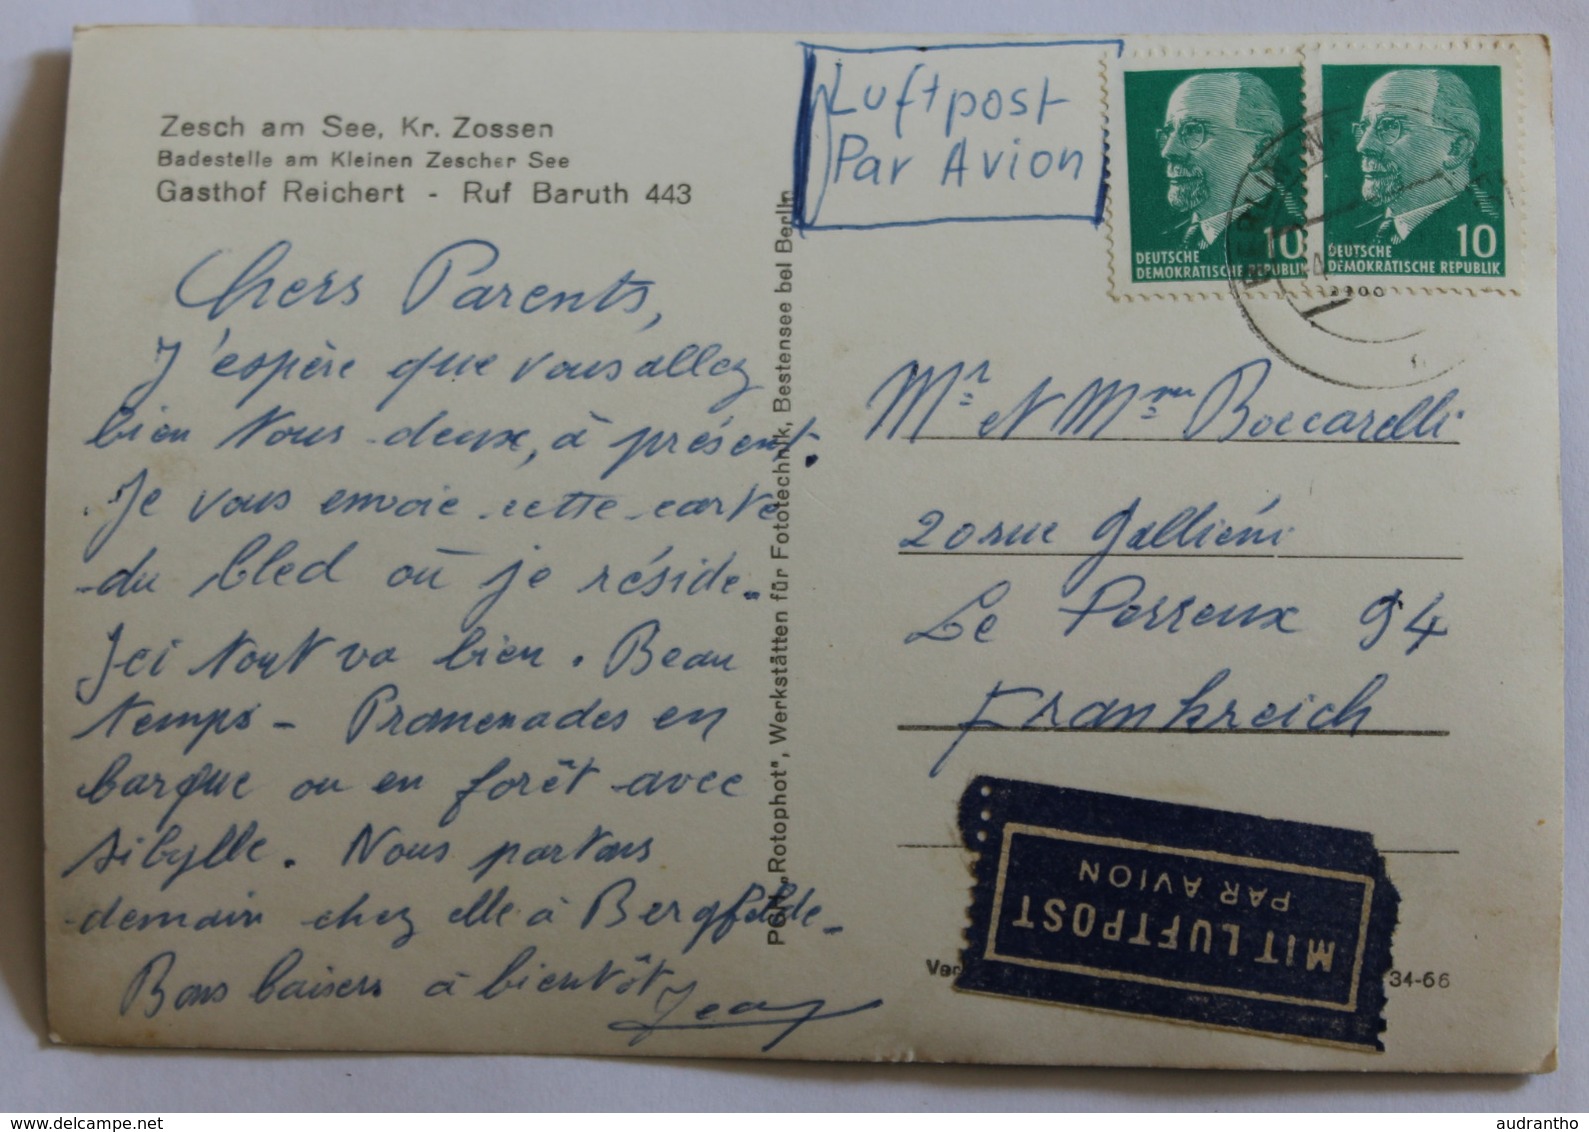 Zesch am See, Kr. Zossen
Badestelle am Kleinen Zescher See
Gasthof Reichert - Ruf Baruth 443
Chers Parents,
J'espère que vous allez
bien tous deux, à présent.
Je vous envoie cette carte
du bled où je réside.
Ici tout va bien. Beau
temps - Promenades en
barque ou en forêt avec
Sibylle. Nous partons
demain chez elle à Bergfelde.
Bons baisers à bientôt
Jean
PGH „Rotophot", Werkstätten für Fototechnik, Bestensee bei Berlin
Luftpost
Par Avion
10
DEUTSCHE
DEMOKRATISCHE REPUBLIK
10
DEUTSCHE
DEMOKRATISCHE REPUBLIK
BERLIN
Mr et Mme Boccarelli
20 rue Galliéni
Le Perreux 94
Frankreich
MIT LUFTPOST
PAR AVION
Ver
34-66
www.delcampe.net
audrantho